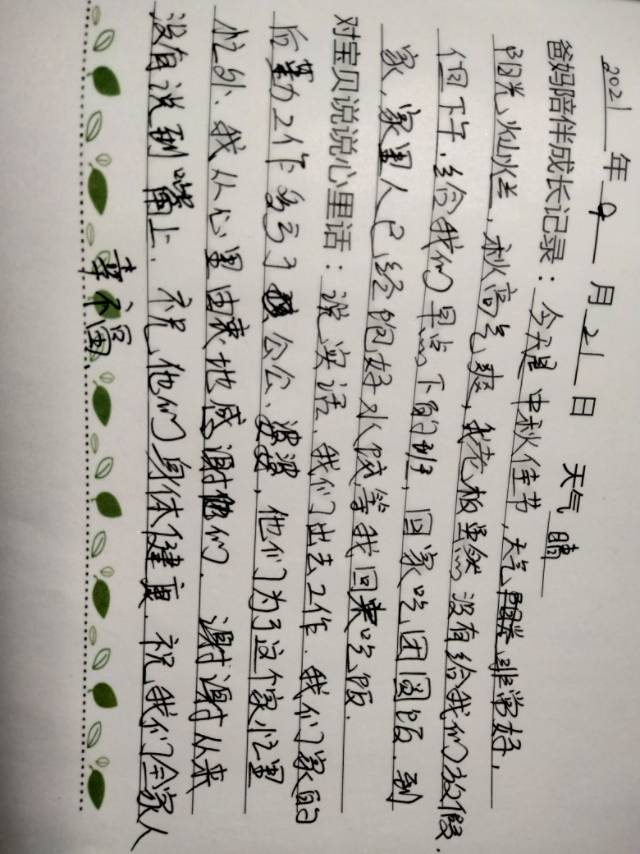 2021年9月21日 天气 晴
爸妈陪伴成长记录：今天是中秋佳节，天气非常好，
阳光灿烂，秋高气爽，我老板虽然没有给我们放假.
但下午给我们早点下的班，回家吃团圆饭，到
家，家里人已经包好水饺等我回来吃饭.
对宝贝说说心里话：说实话，我们出去工作，我们家的
后勤工作多亏了公公、婆婆，他们为了这个家忙里
忙外、我从心里由衷地感谢他们. 谢谢从来
没有说到嘴上. 祝他们身体健康. 祝我们全家人
幸福